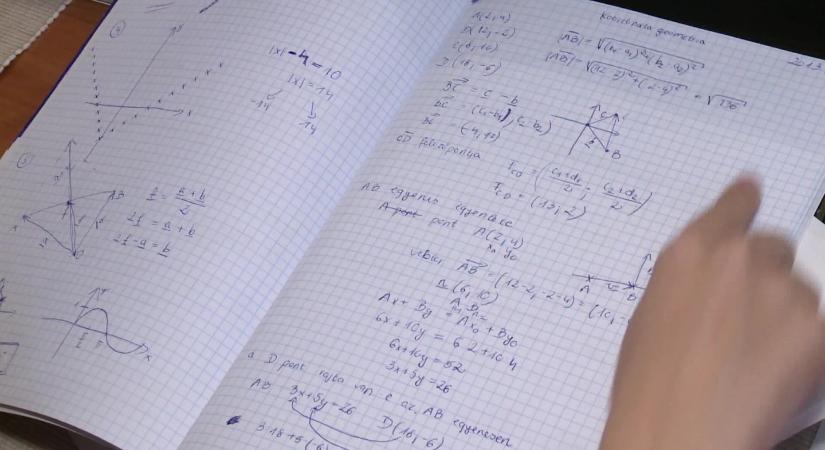 4
|x| - 4 = 10
|x| = 14
-14
14
5
f = a + b / 2
2f = a + b
2f - a = b
Koordináta geometria
2013
A(2, 4)
B(12, -2)
C(8, 10)
D(18, -6)
|AB| = √(b₁ - a₁)² + (b₂ - a₂)²
|AB| = √(12 - 2)² + (-2 - 4)² = √136
BC = c - b
BC = (c₁ - b₁, c₂ - b₂)
BC = (-4, 12)
CD felezőpontja
F_CD = (c₁ + d₁ / 2 ; c₂ + d₂ / 2)
F_CD = (13, 2)
AB egyenes egyenlete
A pont pont A(2, 4)
x₀ y₀
AB = (12 - 2, -2 - 4) = (10, -
n (6, 10)
A B
Ax + By = Ax₀ + By₀
6x + 10y = 6 2 + 10 4
6x + 10y = 52
3x + 5y = 26
a D pont rajta van e az AB egyenesen
AB 3x + 5y = 26
D(18, -6)
3·18 + 5·(-6)